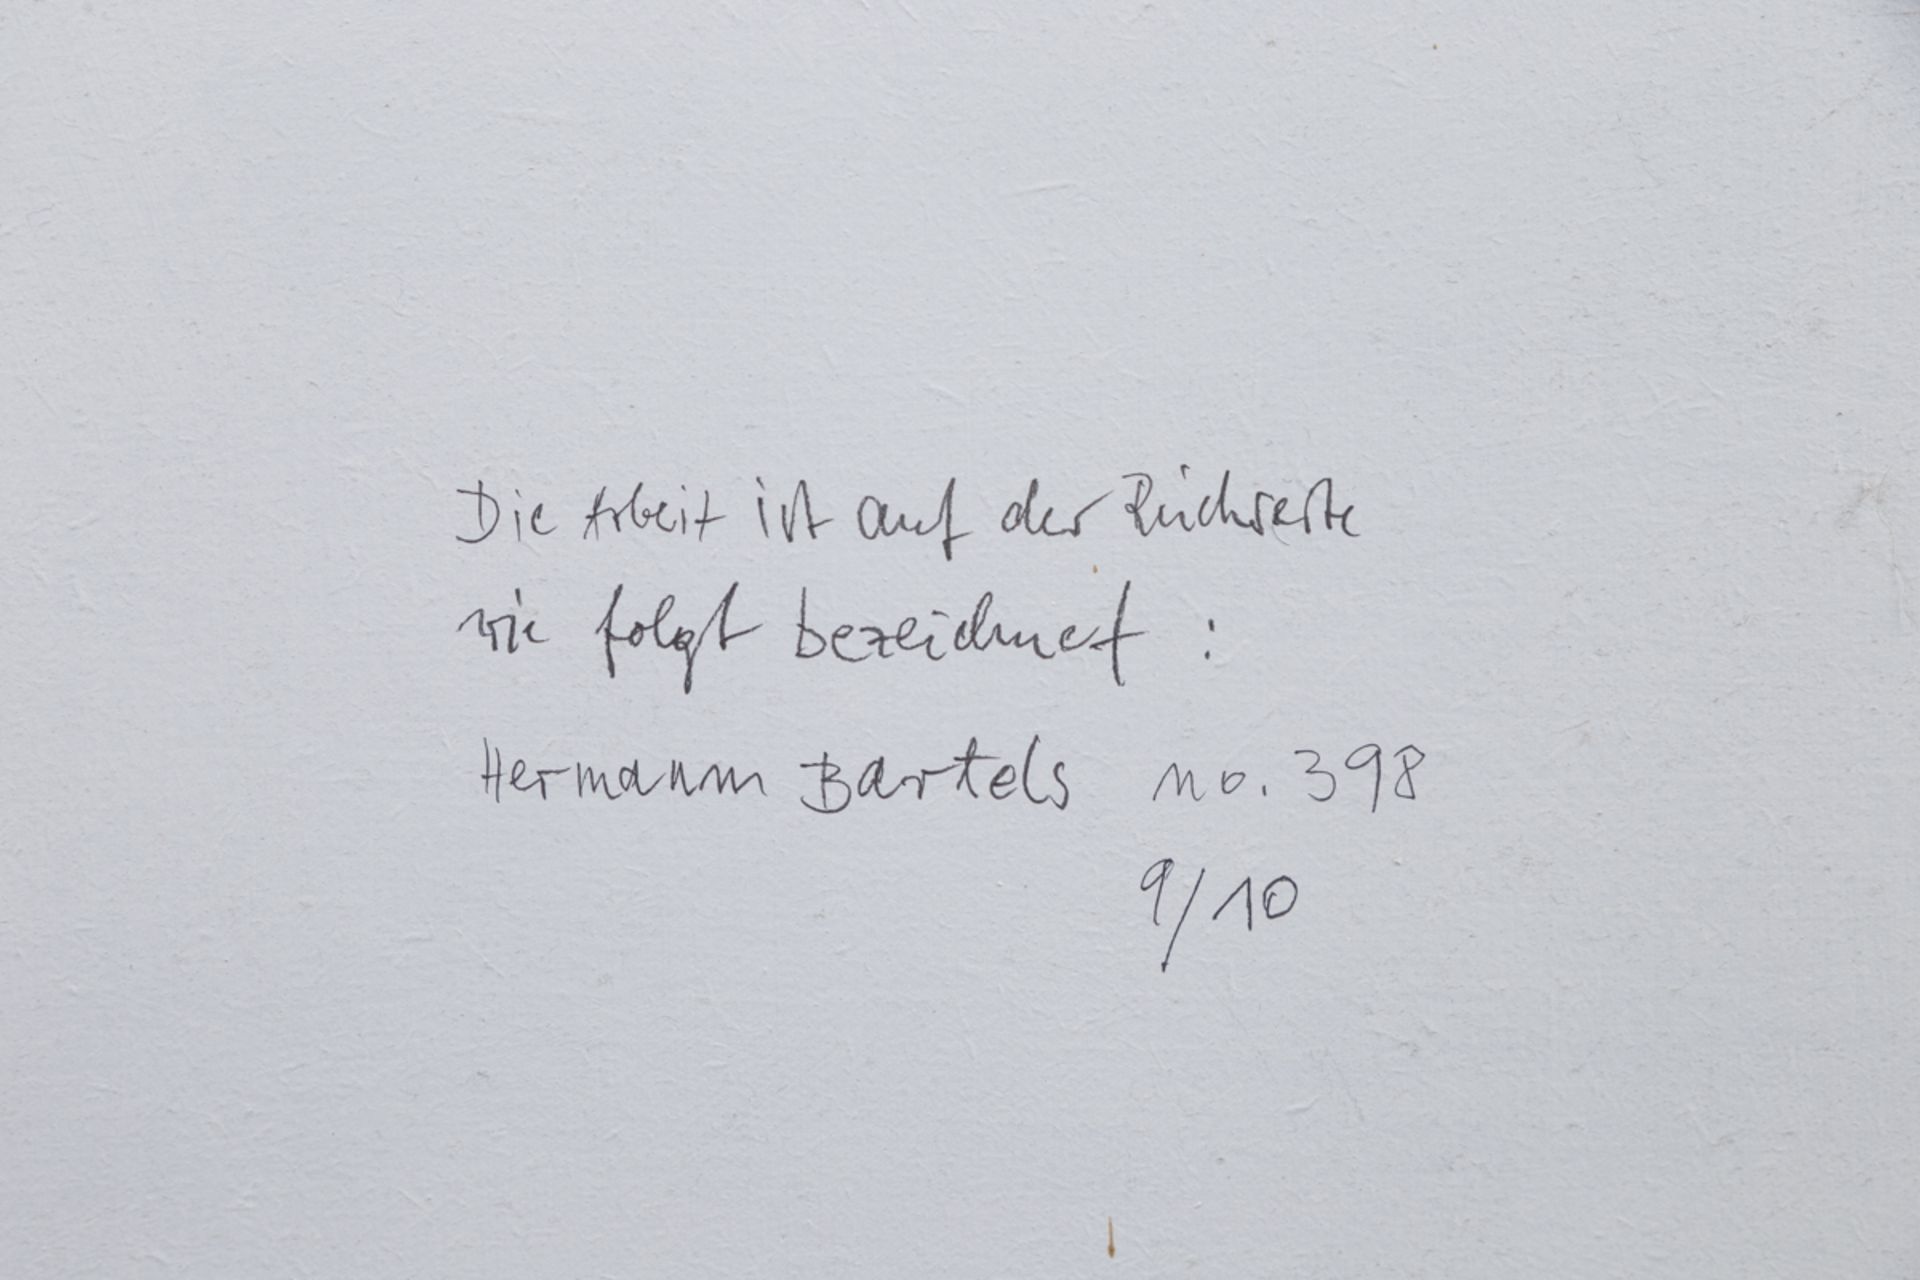 Die Arbeit ist auf der Rückseite
wie folgt bezeichnet :
Hermann Bartels no. 398
9/10